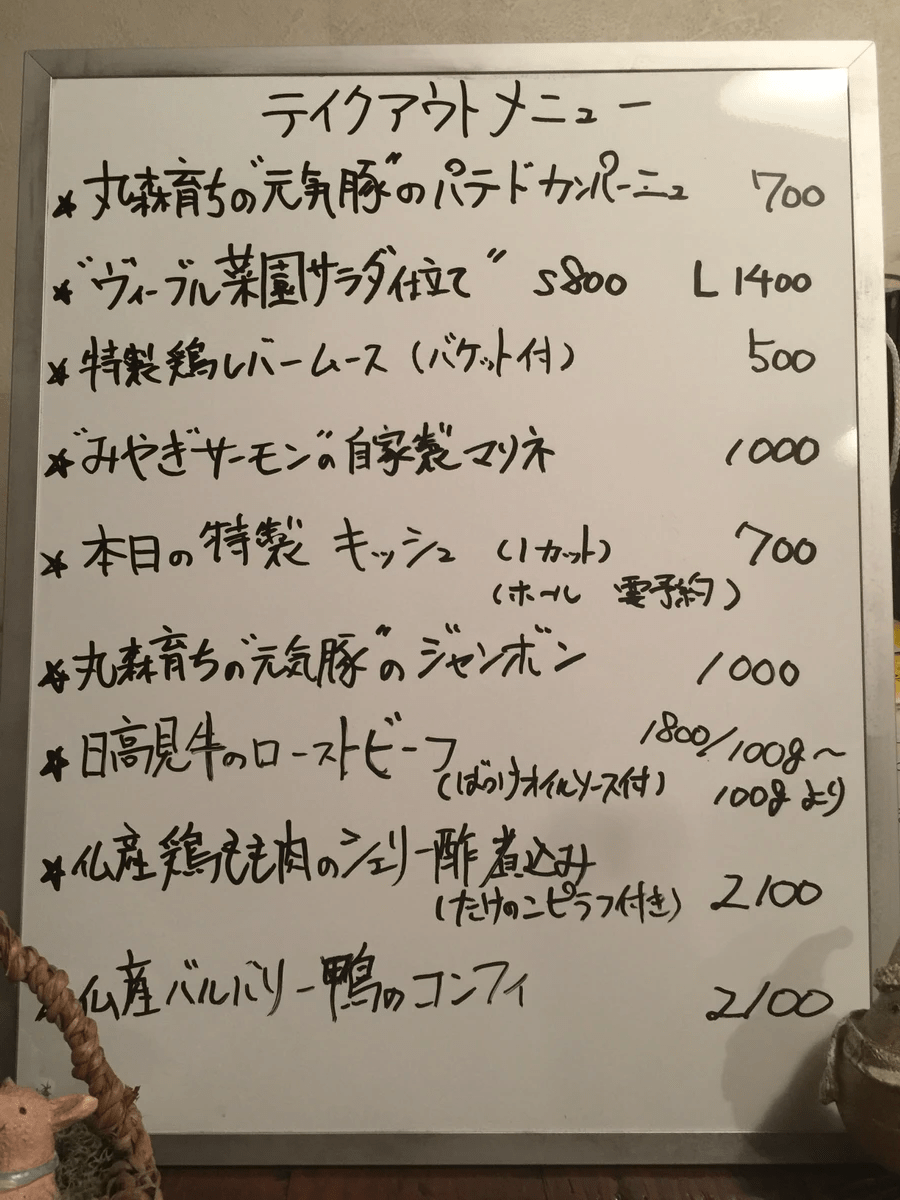 テイクアウトメニュー
★ 丸森育ちの"元気豚"のパテドカンパーニュ 700
★ "ヴィーブル菜園サラダ仕立て" S800 L1400
★ 特製鶏レバームース (バケット付) 500
★ "みやぎサーモン"の自家製マリネ 1000
★ 本日の特製 キッシュ (1カット) 700
(ホール 要予約)
★ 丸森育ちの"元気豚"のジャンボン 1000
★ 日高見牛のローストビーフ 1800/100g〜
(ばっけオイルソース付) 100gより
★ 仏産鶏もも肉のシェリー酢煮込み
(たけのこピラフ付き) 2100
仏産バルバリー鴨のコンフィ 2100